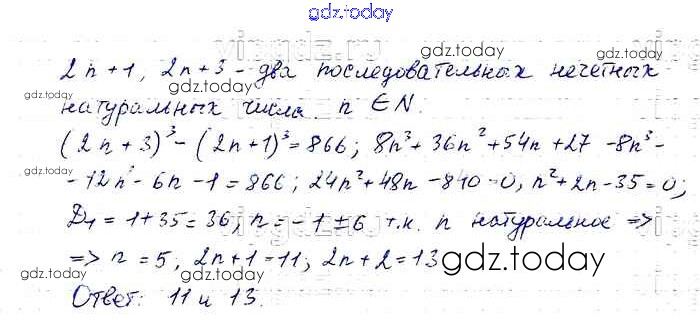 gdz.today
2n+1, 2n+3 – два последовательных нечетных
натуральных числа. n ∈ N.
(2n+3)³-(2n+1)³=866; 8n³+36n²+54n+27-8n³-
-12n²-6n-1=866; 24n²+48n-840=0, n²+2n-35=0;
D₁=1+35=36; n=-1±6 т.к. n натуральное =>
=> n=5, 2n+1=11; 2n+2=13
Ответ: 11 и 13.
gdz.today
gdz.today
gdz.today
gdz.today
gdz.today
gdz.today
gdz.today
gdz.today
gdz.today